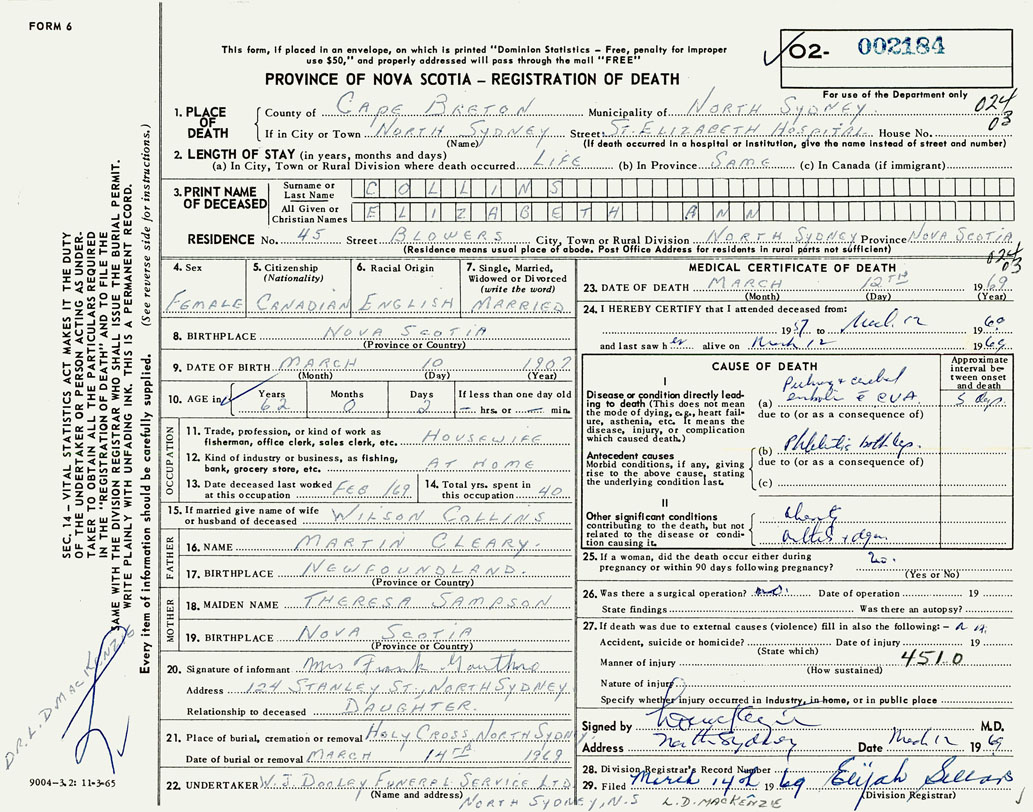 FORM 6
This form, if placed in an envelope, on which is printed "Dominion Statistics – Free, penalty for improper
use $50," and properly addressed will pass through the mail "FREE"
PROVINCE OF NOVA SCOTIA – REGISTRATION OF DEATH
02- 002184
For use of the Department only
024
03
1. PLACE OF DEATH
County of CAPE BRETON Municipality of NORTH SYDNEY.
If in City or Town NORTH SYDNEY Street ST. ELIZABETH HOSPITAL House No.
(Name) (If death occurred in a hospital or institution, give the name instead of street and number)
2. LENGTH OF STAY (in years, months and days)
(a) In City, Town or Rural Division where death occurred LIFE (b) In Province SAME (c) In Canada (if immigrant)
3. PRINT NAME OF DECEASED
Surname or Last Name COLLINS
All Given or Christian Names ELIZABETH ANN
RESIDENCE No. 45 Street BLOWERS City, Town or Rural Division NORTH SYDNEY Province NOVA SCOTIA
(Residence means usual place of abode. Post Office Address for residents in rural parts not sufficient)
024
03
4. Sex
FEMALE
5. Citizenship
(Nationality)
CANADIAN
6. Racial Origin
ENGLISH
7. Single, Married,
Widowed or Divorced
(write the word)
MARRIED
8. BIRTHPLACE NOVA SCOTIA
(Province or Country)
9. DATE OF BIRTH MARCH 10 1907
(Month) (Day) (Year)
10. AGE in
Years Months Days If less than one day old
62 0 2 hrs. or min.
OCCUPATION
11. Trade, profession, or kind of work as
fisherman, office clerk, sales clerk, etc. HOUSEWIFE
12. Kind of industry or business, as fishing,
bank, grocery store, etc. AT HOME
13. Date deceased last worked
at this occupation FEB /69
14. Total yrs. spent
in this occupation 40
15. If married give name of wife
or husband of deceased WILSON COLLINS
FATHER
16. NAME MARTIN CLEARY.
17. BIRTHPLACE NEWFOUNDLAND.
(Province or Country)
MOTHER
18. MAIDEN NAME THERESA SAMPSON
19. BIRTHPLACE NOVA SCOTIA
(Province or Country)
20. Signature of informant Mrs Frank
Address 124 STANLEY ST., NORTH SYDNEY
Relationship to deceased DAUGHTER.
21. Place of burial, cremation or removal HOLY CROSS NORTH SYDN
Date of burial or removal MARCH 14TH 1969
22. UNDERTAKER W. J. DOOLEY FUNERAL SERVICE LTD
(Name and address)
NORTH SYDNEY, N.S
MEDICAL CERTIFICATE OF DEATH
23. DATE OF DEATH MARCH 12TH 1969
(Month) (Day) (Year)
24. I HEREBY CERTIFY that I attended deceased from:
1957 to March 12 1969
and last saw her alive on March 12 1969
CAUSE OF DEATH
Approximate
interval be-
tween onset
and death
I
Disease or condition directly lead-
ing to death (This does not mean
the mode of dying, e.g., heart fail-
ure, asthenia, etc. It means the
disease, injury, or complication
which caused death.)
(a) emboli CVA 5 days
due to (or as a consequence of)
Antecedent causes
Morbid conditions, if any, giving
rise to the above cause, stating
the underlying condition last.
(b) Phlebitis both legs.
due to (or as a consequence of)
(c)
II
Other significant conditions
contributing to the death, but not
related to the disease or condi-
tion causing it.
25. If a woman, did the death occur either during
pregnancy or within 90 days following pregnancy? no.
(Yes or No)
26. Was there a surgical operation? no. Date of operation 19
State findings Was there an autopsy?
27. If death was due to external causes (violence) fill in also the following: –
Accident, suicide or homicide? Date of injury 19
(State which)
Manner of injury 451.0
(How sustained)
Nature of injury
Specify whether injury occurred in industry, in home, or in public place
Signed by M.D.
Address North Sydney Date March 12 1969
28. Division Registrar's Record Number
29. Filed March 14th 1969 Elijah
(Division Registrar)
L.D. MACKENZIE
SEC. 14 – VITAL STATISTICS ACT MAKES IT THE DUTY
OF THE UNDERTAKER OR PERSON ACTING AS UNDER-
TAKER TO OBTAIN ALL THE PARTICULARS REQUIRED
IN THE "REGISTRATION OF DEATH" AND TO FILE THE
SAME WITH THE DIVISION REGISTRAR WHO SHALL ISSUE THE BURIAL PERMIT.
WRITE PLAINLY WITH UNFADING INK. THIS IS A PERMANENT RECORD.
Every item of information should be carefully supplied. (See reverse side for instructions.)
DR. L. D. MACKENZIE
9004-3.2: 11-3-65